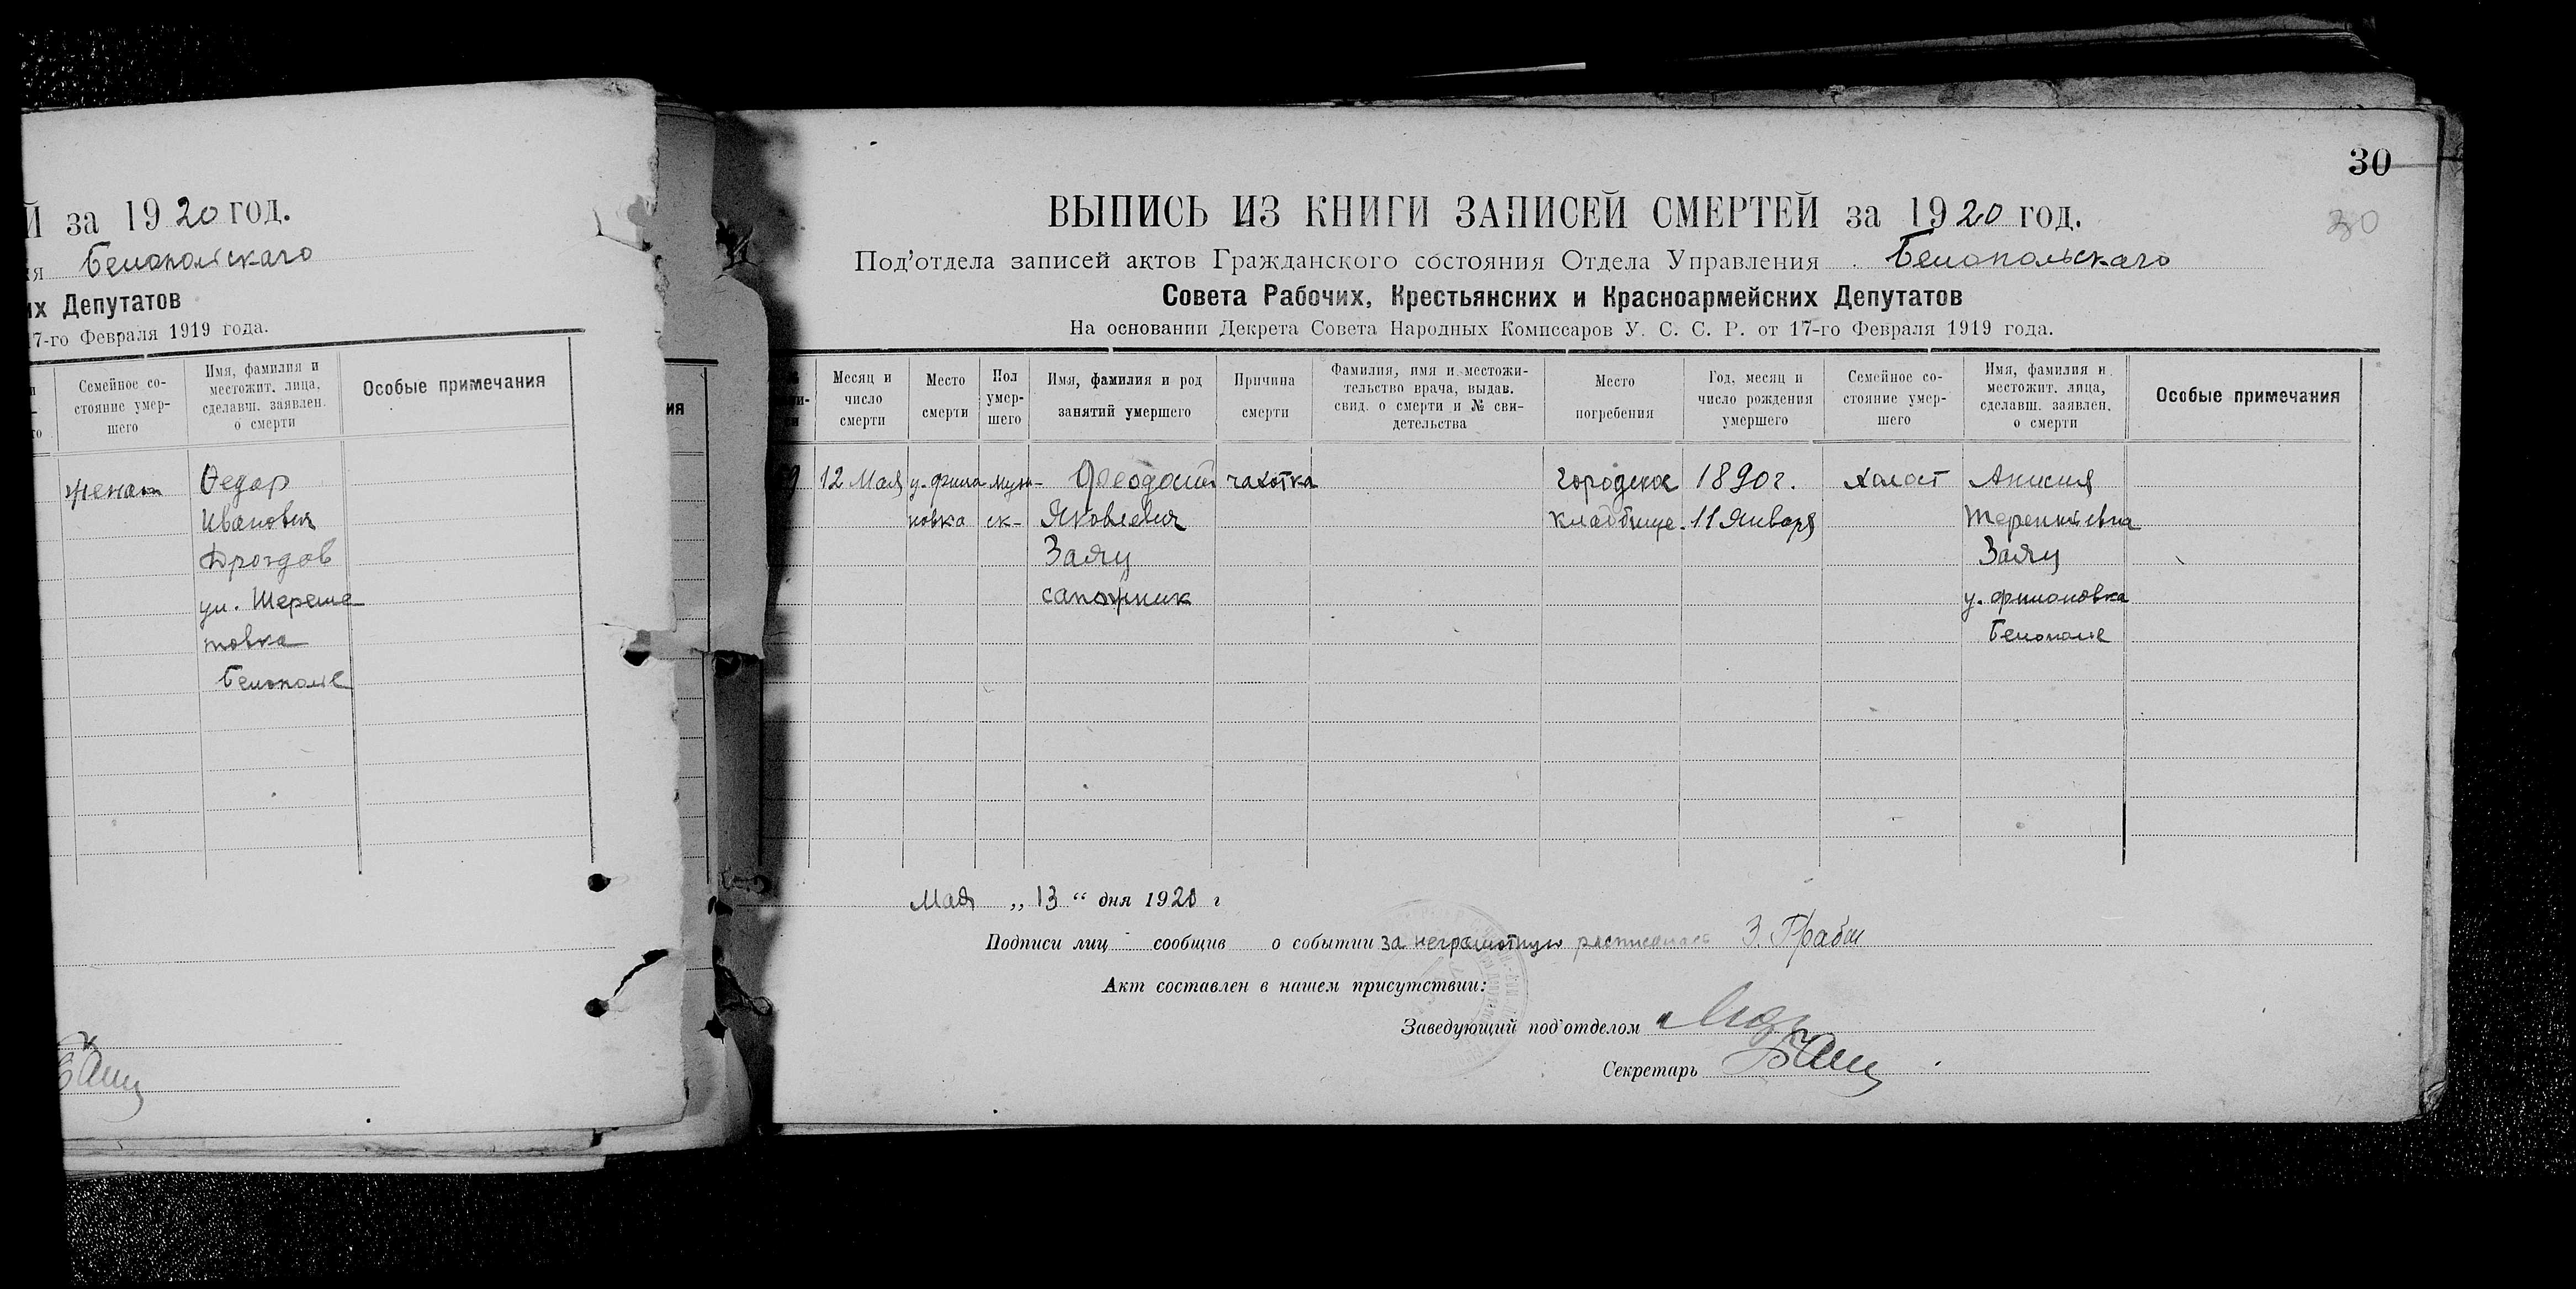 Й за 1920 год.
я Белопольскаго
их Депутатов
7-го Февраля 1919 года.
Семейное со-
стояние умер-
шего
Имя, фамилия и
местожит. лица,
сделавш. заявлен.
о смерти
Особые примечания
женат
Федар
Иванович
Дроздов
ул. Шереме
товка
Белополье
30
30
ВЫПИСЬ ИЗ КНИГИ ЗАПИСЕЙ СМЕРТЕЙ за 1920 год.
Под'отдела записей актов Гражданского состояния Отдела Управления Белопольскаго
Совета Рабочих, Крестьянских и Красноармейских Депутатов
На основании Декрета Совета Народных Комиссаров У. С. С. Р. от 17-го Февраля 1919 года.
Месяц и
число
смерти
Место
смерти
Пол
умер-
шего
Имя, фамилия и род
занятий умершего
Причина
смерти
Фамилия, имя и местожи-
тельство врача, выдав.
свид. о смерти и № сви-
детельства
Место
погребения
Год, месяц и
число рождения
умершего
Семейное со-
стояние умер-
шего
Имя, фамилия и
местожит. лица,
сделавш. заявлен.
о смерти
Особые примечания
9
12 Мая
у. фило
новка
муж-
ск-
Феодосий
Яковлевич
Заяц
сапожник
чахотка
Городское
кладбище.
1890 г.
11 Января
Холост
Анисия
Терентievна
Заяц
у. филоновка
Белополье
Мая „ 13 “ дня 1920 г
Подписи лиц сообщив о событии за неграмотную расписалась З. Граба
Акт составлен в нашем присутствии:
Заведующий под'отделом
Секретарь